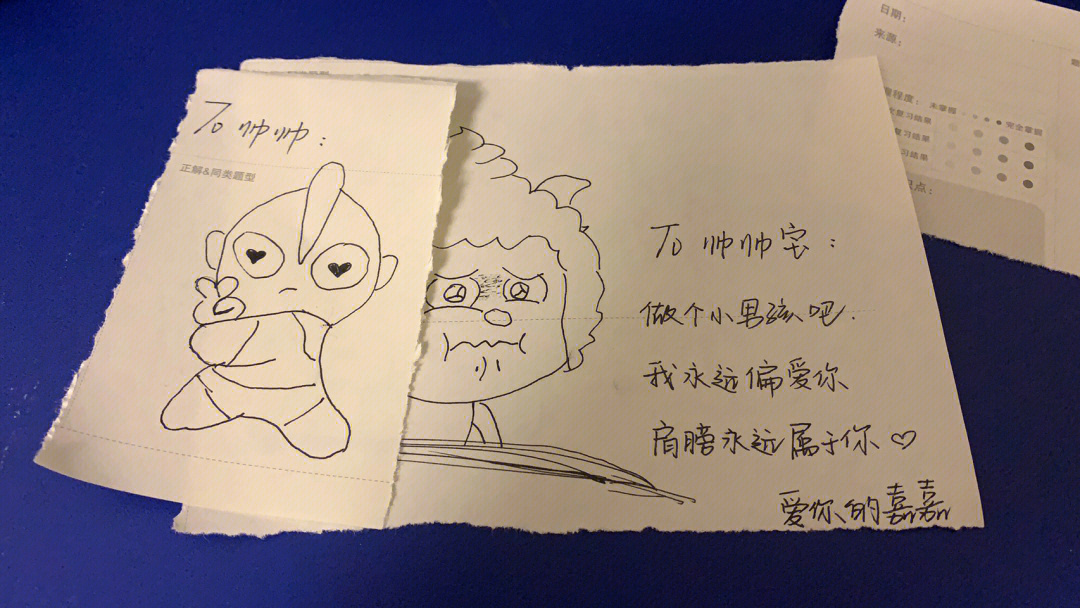 To 帅帅：
正解&同类题型
To 帅帅宝：
做个小男孩吧.
我永远偏爱你
肩膀永远属于你♡
爱你的嘉嘉
日期：
来源：
程度： 未掌握 完全掌握
复习结果
复习结果
习结果
点：